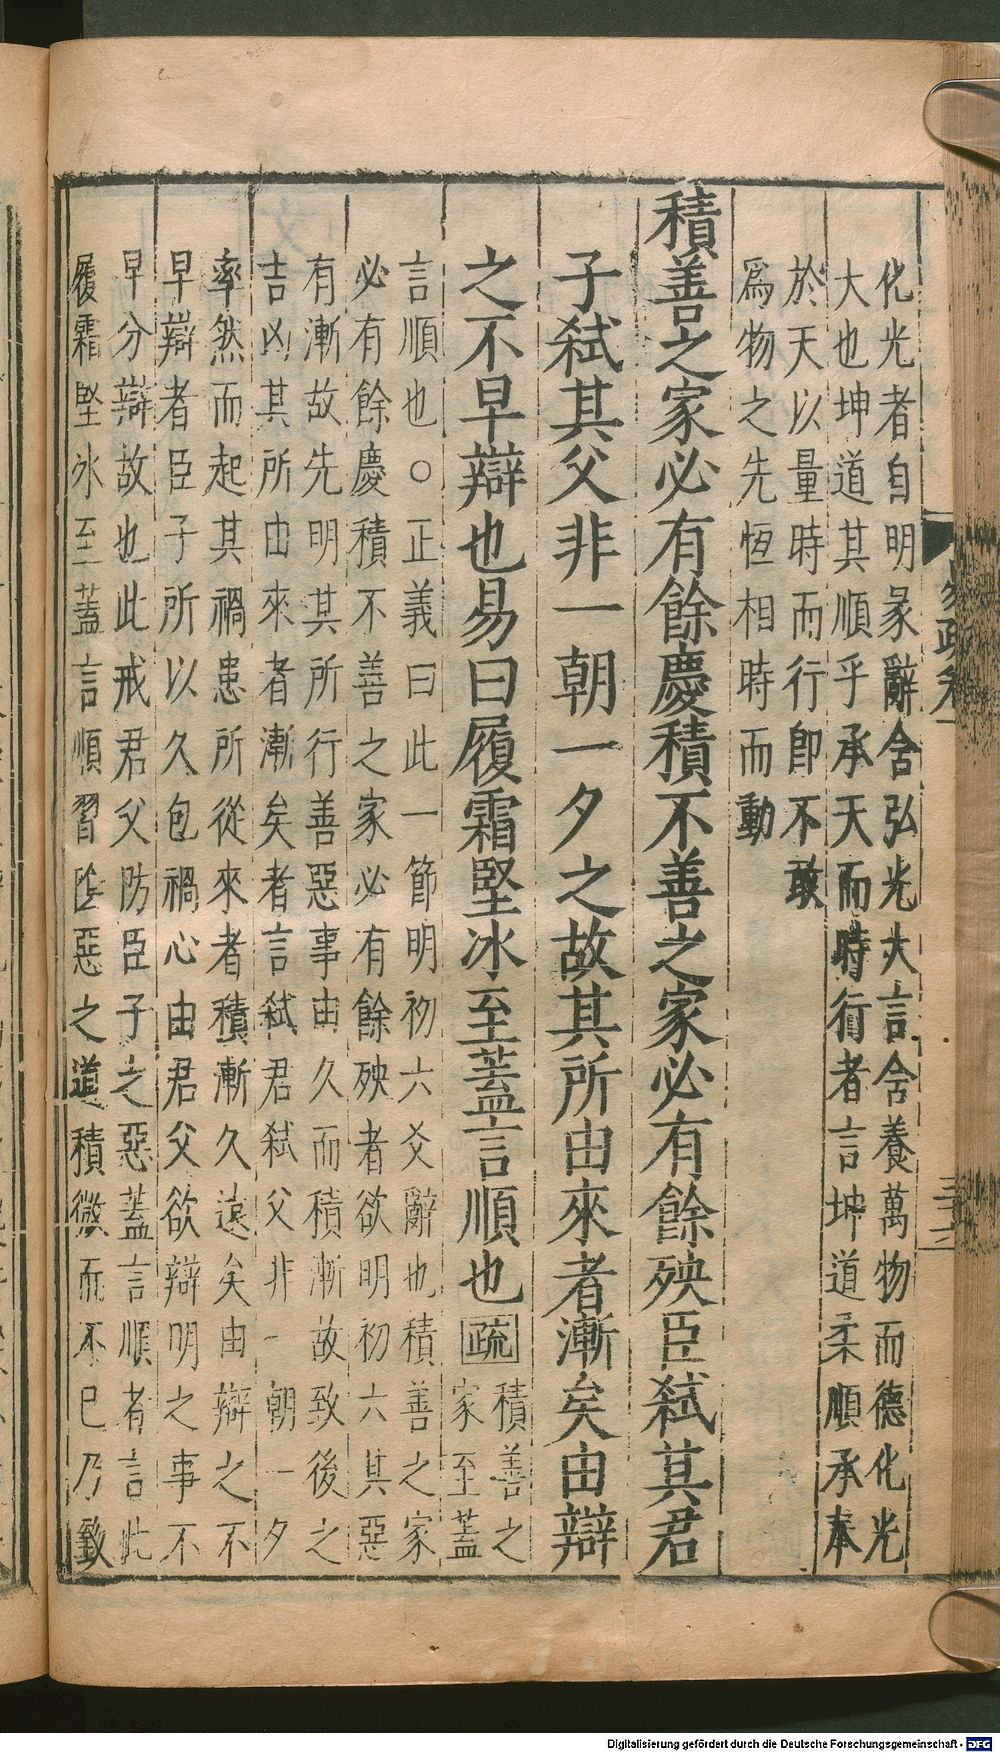 化光者自明彖辭含弘光大言含養萬物而德化光
大也坤道其順乎承天而時行者言坤道柔順承奉
於天以量時而行即不敢
爲物之先恆相時而動
積善之家必有餘慶積不善之家必有餘殃臣弑其君
子弑其父非一朝一夕之故其所由來者漸矣由辯
之不早辯也易曰履霜堅冰至蓋言順也疏
積善之
家至蓋
言順也○正義曰此一節明初六爻辭也積善之家
必有餘慶積不善之家必有餘殃者欲明初六其惡
有漸故先明其所行善惡事由久而積漸故致後之
吉凶其所由來者漸矣者言弑君弑父非一朝一夕
率然而起其禍患所從來者積漸久遠矣由辯之不
早辯者臣子所以久包禍心由君父欲辯明之事不
早分辯故也此戒君父防臣子之惡蓋言順者言此
履霜堅冰至蓋言順習陰惡之道積微而不已乃致
易疏卷一
三十六
Digitalisierung gefördert durch die Deutsche Forschungsgemeinschaft - DFG